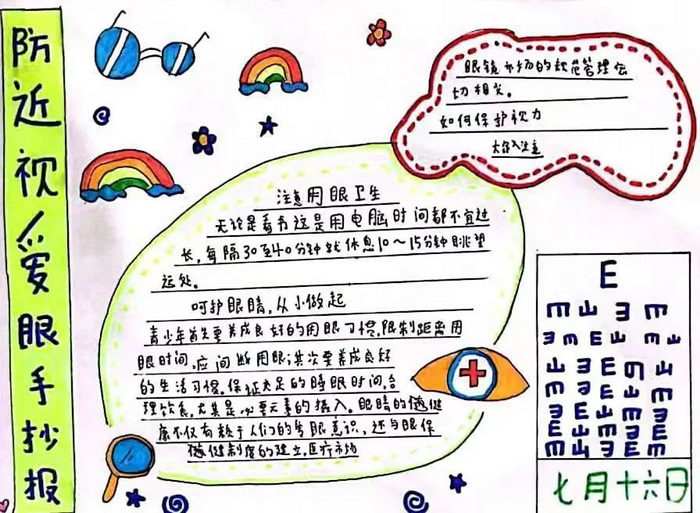 防近视爱眼手抄报
眼镜市场的规范管理密
切相关。
如何保护视力
注意用眼卫生
无论是看书还是用电脑时间都不宜过
长，每隔30至40分钟就休息10～15分钟眺望
远处。
呵护眼睛，从小做起
青少年首先要养成良好的用眼习惯，限制距离用
眼时间，应间断用眼；其次要养成良好
的生活习惯，保证充足的睡眠时间，合
理饮食，尤其是必要元素的摄入。眼睛的健
康不仅有赖于人们的爱眼意识，还与眼保
健制度的建立，医疗市场
E
七月十六日